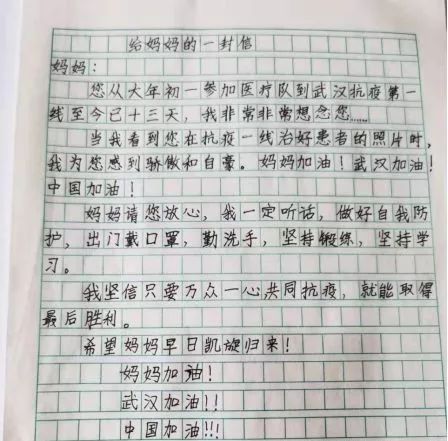 给妈妈的一封信
妈妈：
您从大年初一参加医疗队到武汉抗疫第一
线至今已十三天，我非常非常想念您……
当我看到您在抗疫一线治好患者的照片时，
我为您感到骄傲和自豪。妈妈加油！武汉加油！
中国加油！
妈妈请您放心，我一定听话，做好自我防
护，出门戴口罩，勤洗手，坚持锻练，坚持学
习。
我坚信只要万众一心共同抗疫，就能取得
最后胜利。
希望妈妈早日凯旋归来！
妈妈加油！
武汉加油！！
中国加油！！！